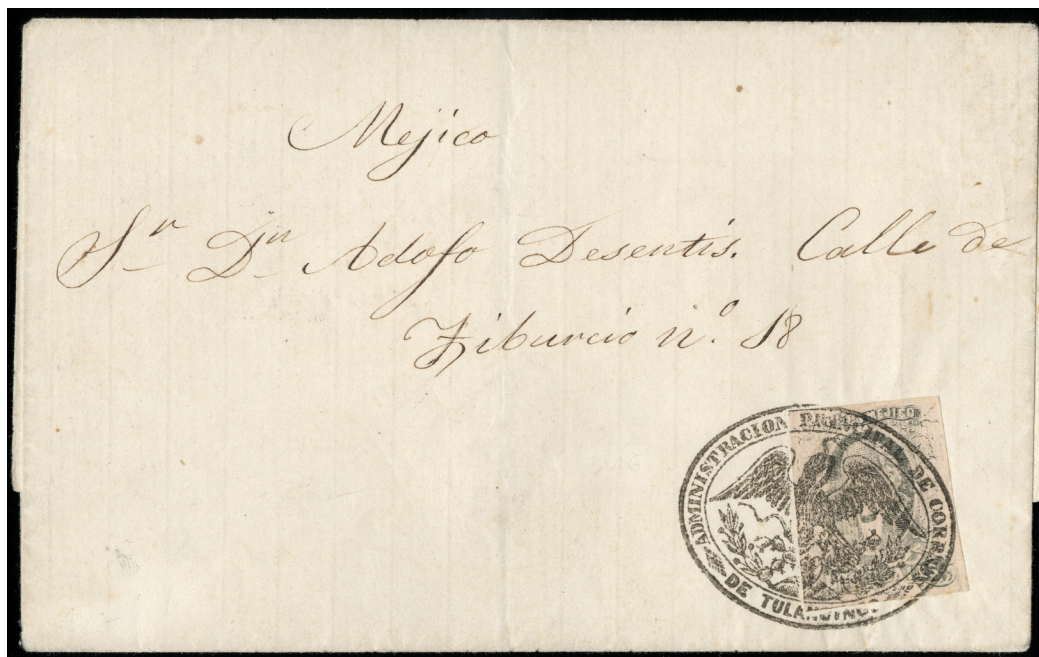 Mejico
Sn Dn Adolfo Desentis. Calle de
Tiburcio no. 18
ADMINISTRACION PRINCIPAL DE CORREOS
DE TULANCINGO
MEJICO